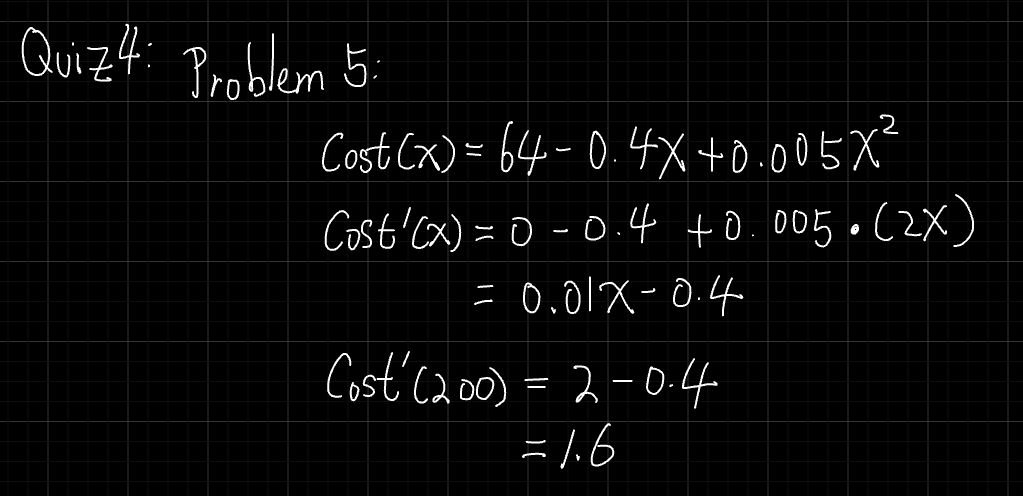 Quiz4: Problem 5:
Cost(x) = 64 - 0.4x + 0.005x²
Cost'(x) = 0 - 0.4 + 0.005 • (2x)
= 0.01x - 0.4
Cost'(200) = 2 - 0.4
= 1.6